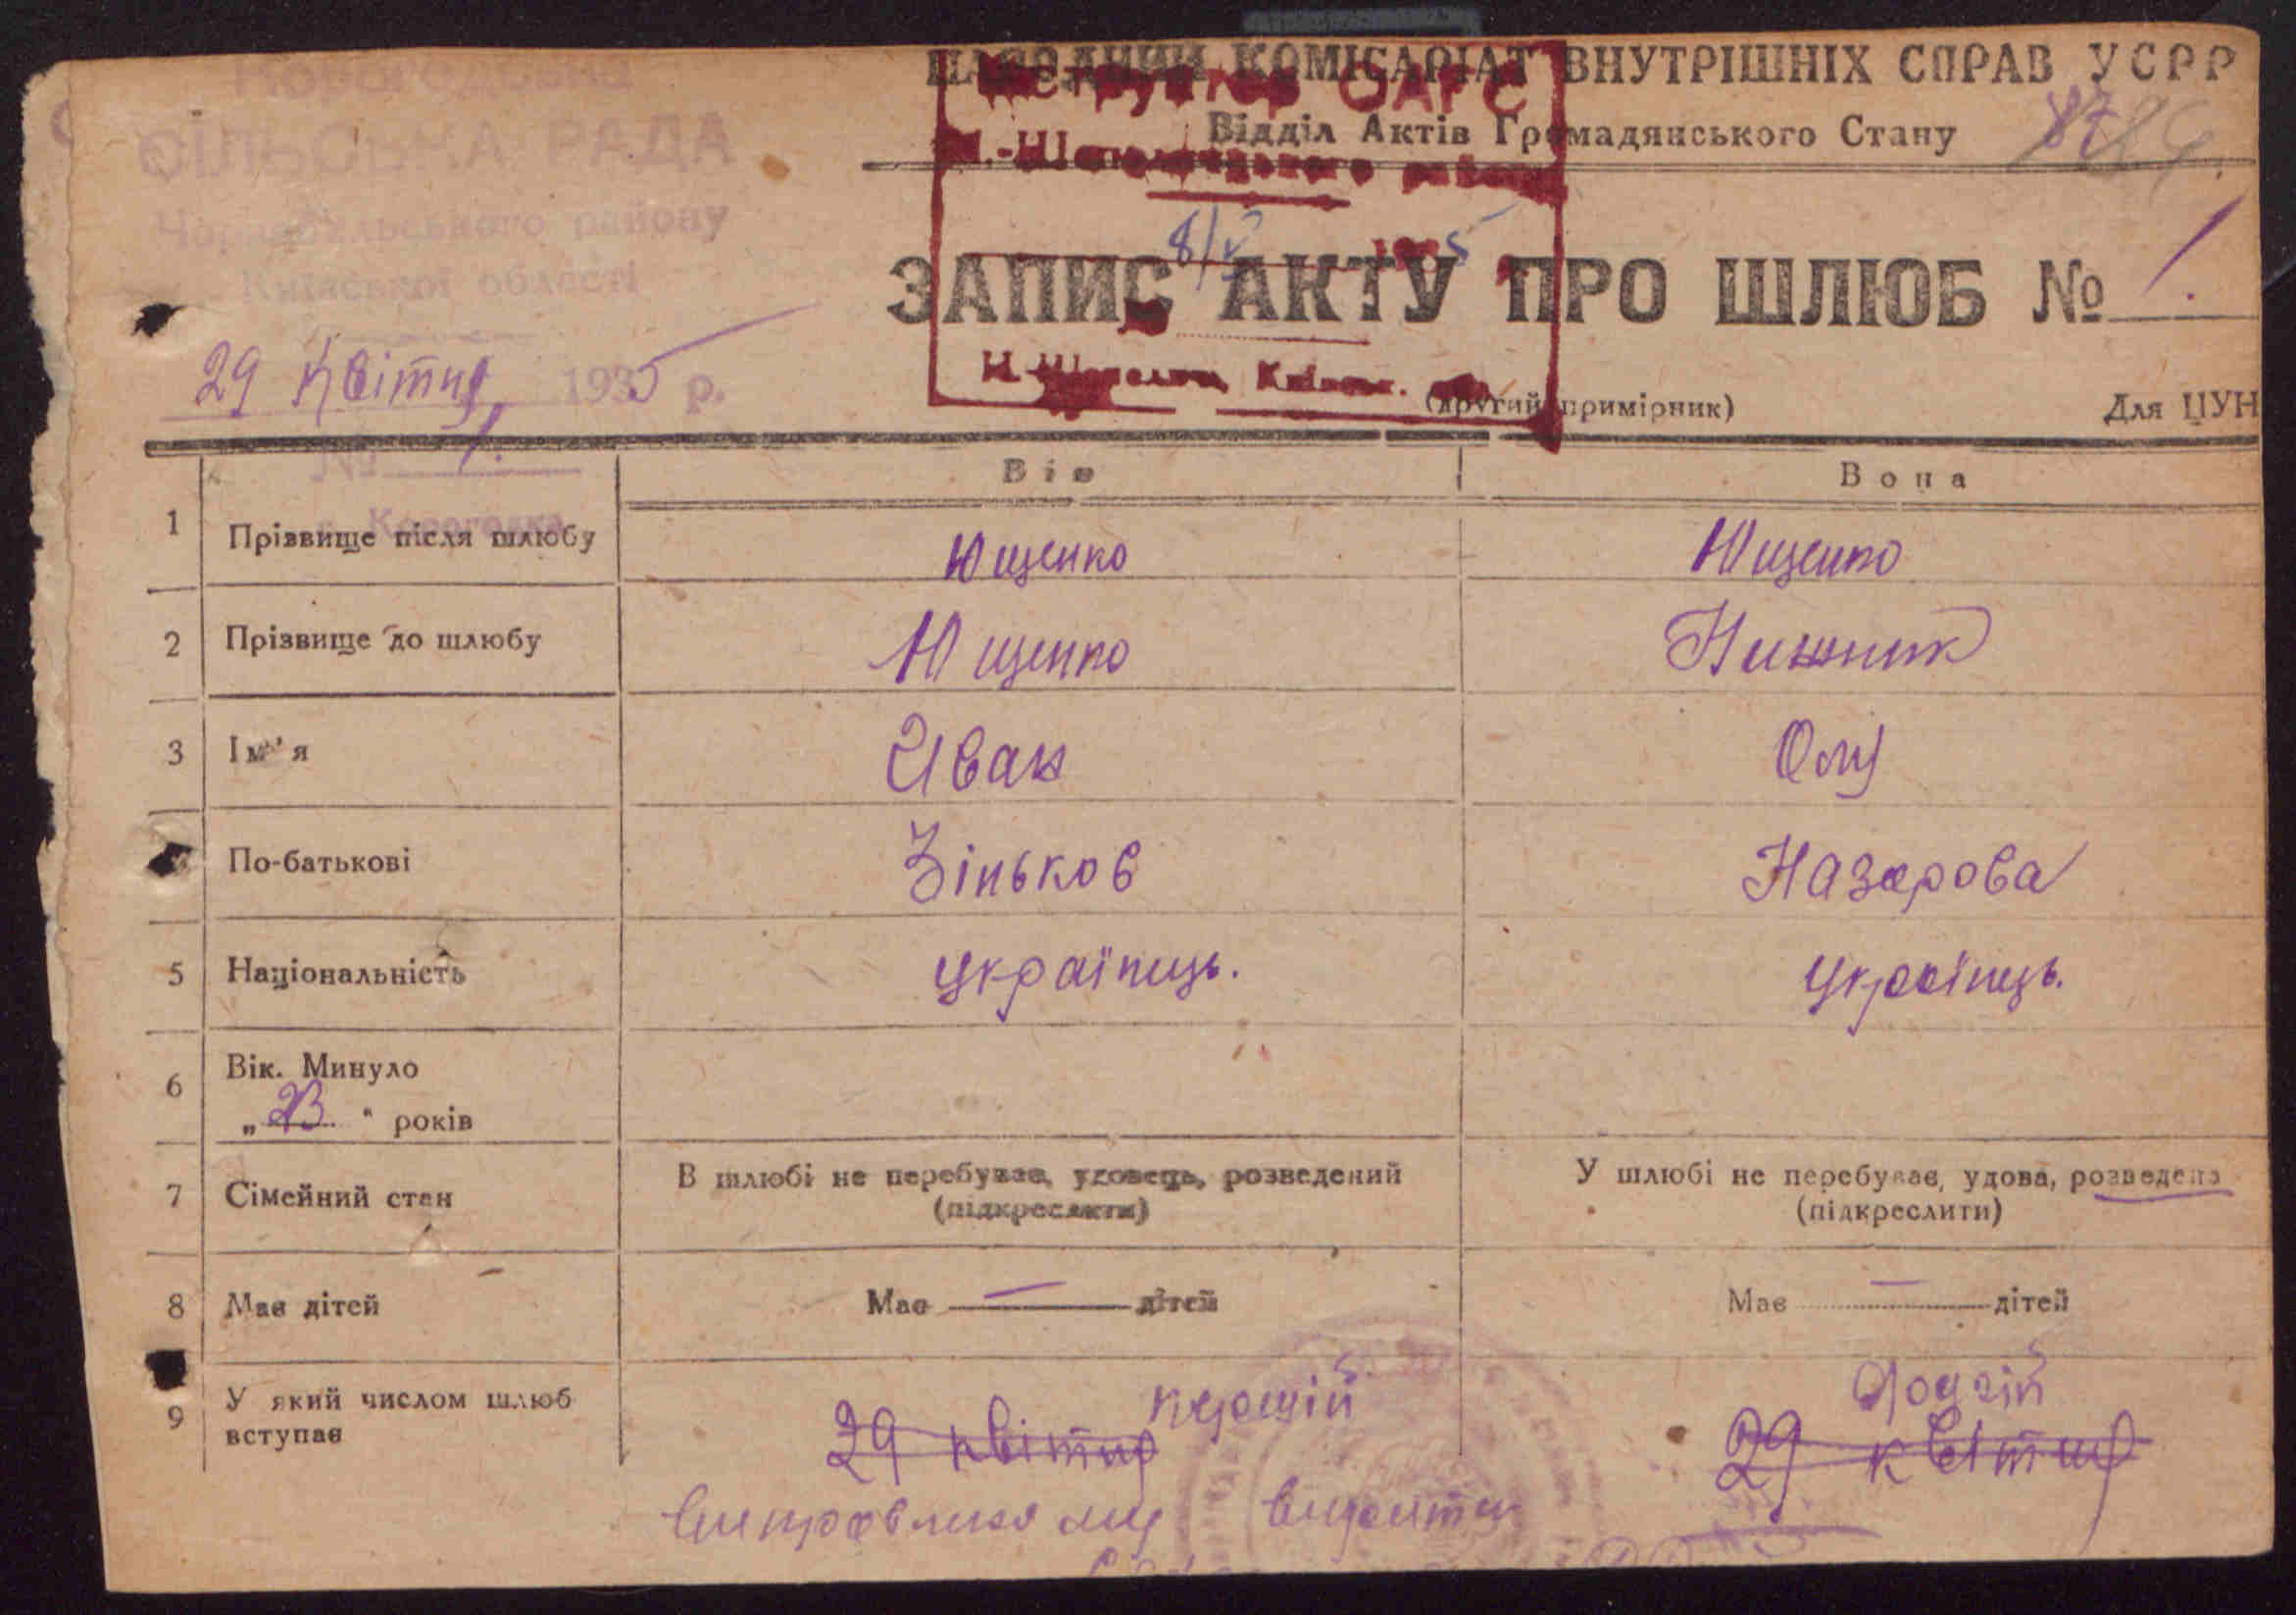 Корогодська
СІЛЬСЬКА РАДА
Чорнобильського району
Київської області
29 Квітня 1935 р.
№ 1.
с. Корогодка
НАРОДНИЙ КОМІСАРІАТ ВНУТРІШНІХ СПРАВ УСРР
Відділ Актів Громадянського Стану
87
8/V 5
ЗАПИС АКТУ ПРО ШЛЮБ № 1.
(другий примірник) Для ЦУН
Він Вона
1 Прізвище після шлюбу Ющенко Ющенко
2 Прізвище до шлюбу Ющенко
3 Ім'я Иван Оля
4 По-батькові Зіньков Назарова
5 Національність українець. українець.
6 Вік. Минуло
„23“ років
7 Сімейний стан В шлюбі не перебуває, удовець, розведений У шлюбі не перебуває, удова, розведена
(підкреслити) (підкреслити)
8 Має дітей Має — дітей Має — дітей
9 У який числом шлюб
вступає
29 квітня 29 квітня